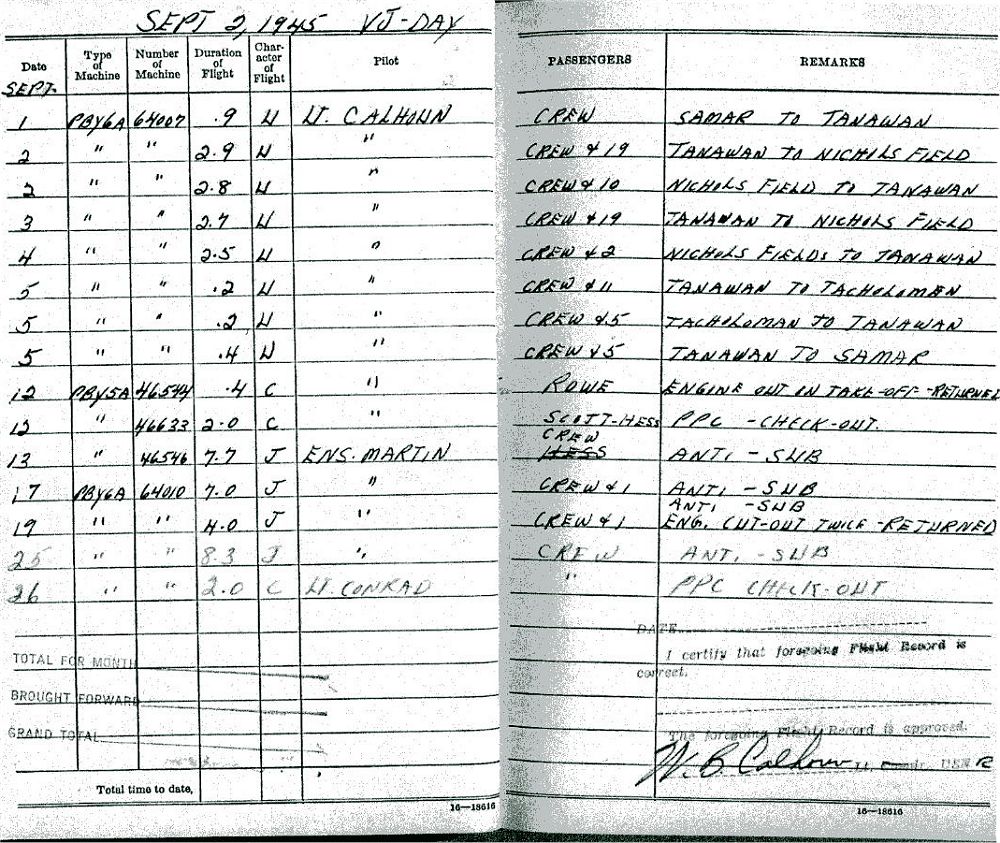 SEPT 2, 1945 VJ-DAY
Date Type of Machine Number of Machine Duration of Flight Character of Flight Pilot PASSENGERS REMARKS
SEPT.
1 PBY6A 64007 .9 U LT. CALHOUN CREW SAMAR TO TANAWAN
2 " " 2.9 U " CREW & 19 TANAWAN TO NICHOLS FIELD
2 " " 2.8 U " CREW & 10 NICHOLS FIELD TO TANAWAN
3 " " 2.7 U " CREW & 19 TANAWAN TO NICHOLS FIELD
4 " " 2.5 U " CREW & 2 NICHOLS FIELDS TO TANAWAN
5 " " .2 U " CREW & 11 TANAWAN TO TACHOLOMAN
5 " " .2 U " CREW & 5 TACHOLOMAN TO TANAWAN
5 " " .4 U " CREW & 5 TANAWAN TO SAMAR
12 PBY5A 46544 .4 C " ROWE ENGINE OUT ON TAKE-OFF-RETURNED
12 " 46633 2.0 C " SCOTT-HESS PPC - CHECK-OUT
CREW
13 " 46546 7.7 J ENS. MARTIN HESS ANTI - SUB
17 PBY6A 64010 7.0 J " CREW & 1 ANTI - SUB
ANTI - SUB
19 " " 4.0 J " CREW & 1 ENG. CUT-OUT TWICE-RETURNED
25 " " 8.3 J " CREW ANTI - SUB
26 " " 2.0 C LT. CONRAD " PPC CHECK-OUT
DATE
TOTAL FOR MONTH
I certify that foregoing Flight Record is
correct.
BROUGHT FORWARD
GRAND TOTAL
The foregoing Flight Record is approved.
W. B. Calhoun Lt. Comdr. USN R
Total time to date,
16—18616 16—18616